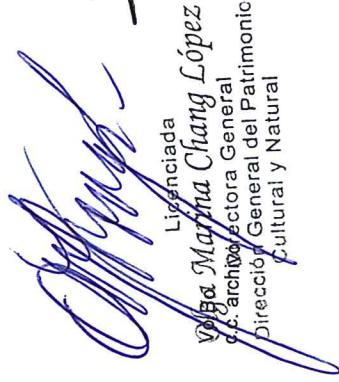 Licenciada
Volga Marina Chang López
c.c. archivo
Directora General
Dirección General del Patrimonio
Cultural y Natural